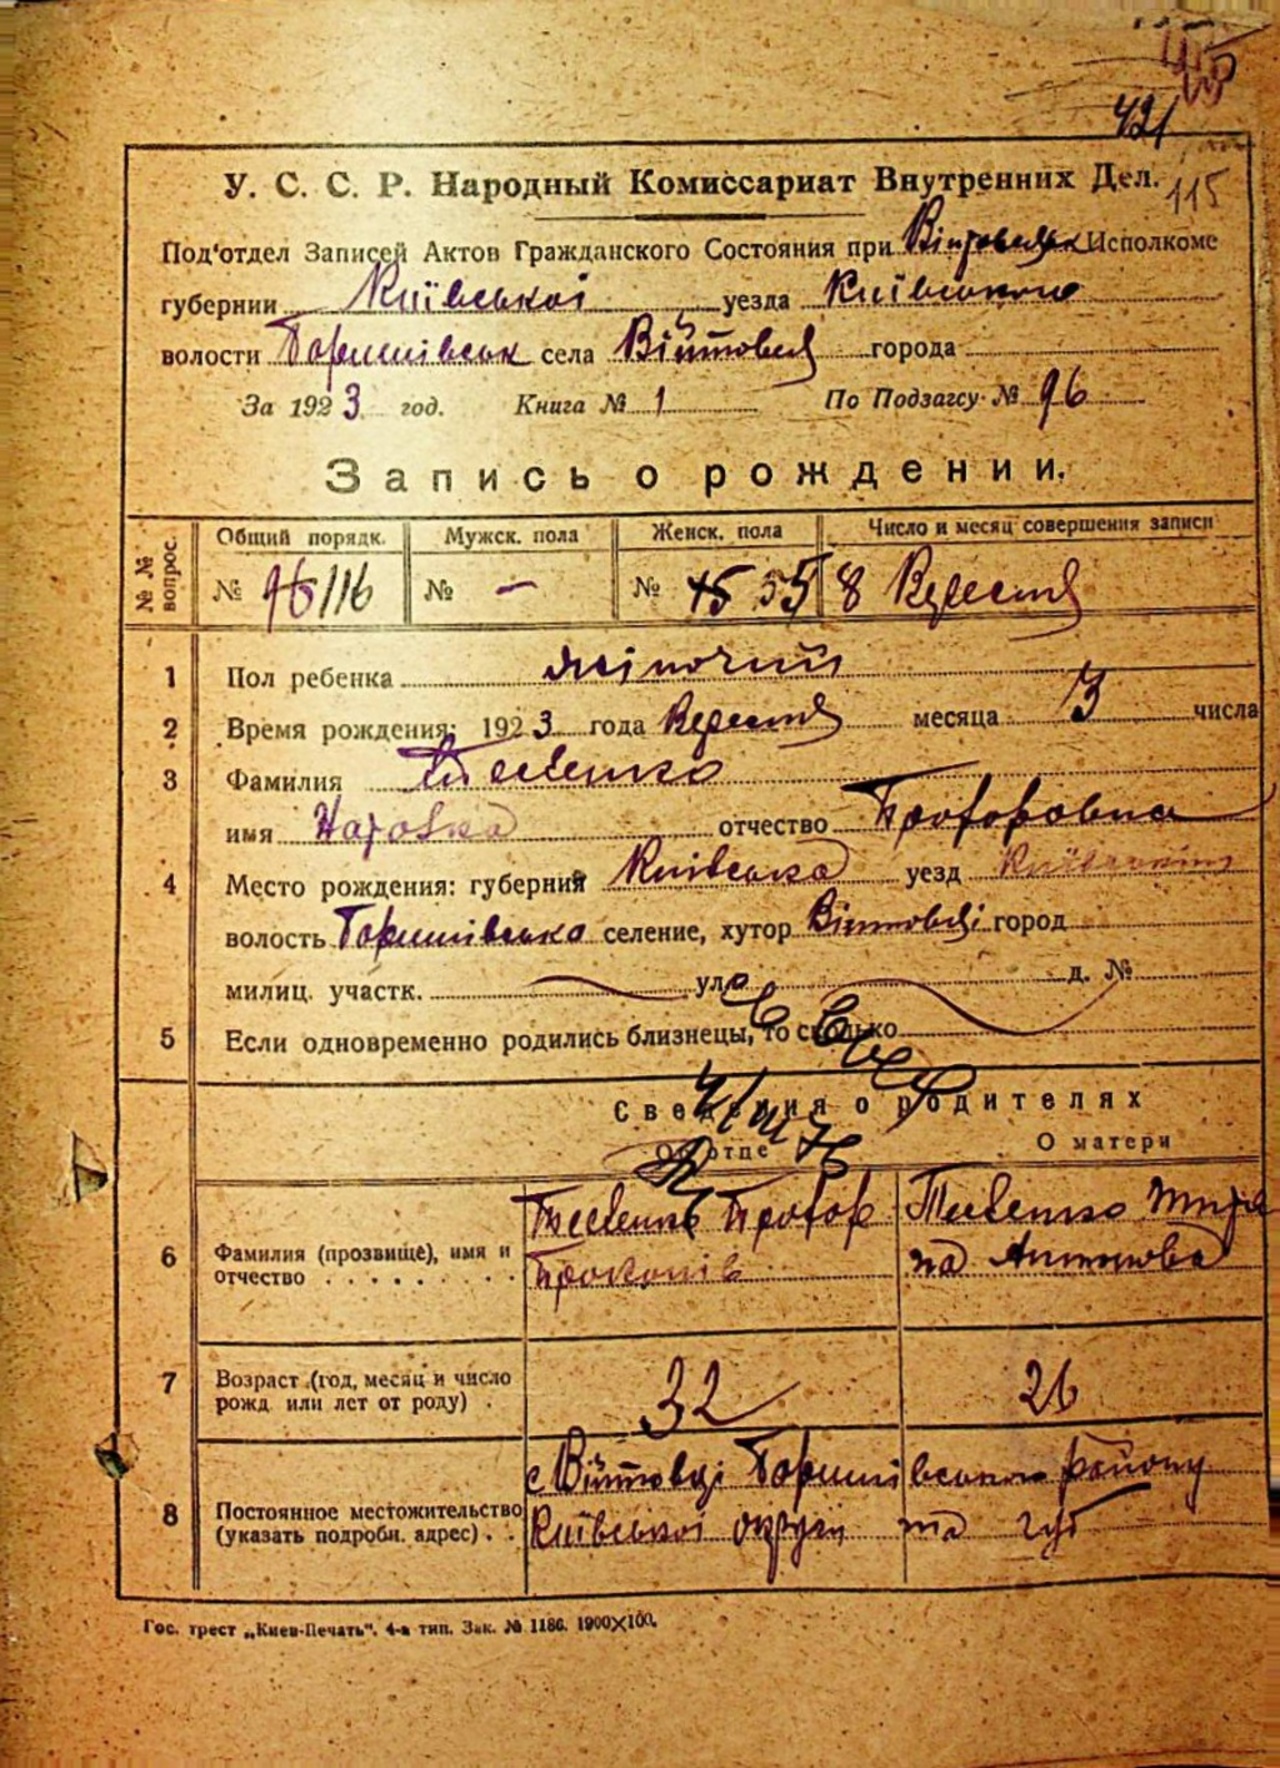 421
115
У. С. С. Р. Народный Комиссариат Внутренних Дел.
Под'отдел Записей Актов Гражданского Состояния при Исполкоме
губернии Київської уезда Київського
волости села Війтовця города
За 1923 год. Книга № 1 По Подзагсу № 96
Запись о рождении.
№ № вопрос. Общий порядк. Мужск. пола Женск. пола Число и месяц совершения записи
№ 96/116 № — № 45 55 8 Вересня
1 Пол ребенка жіночий
2 Время рождения: 1923 года Вересня месяца 3 числа
3 Фамилия
имя отчество
4 Место рождения: губерния Київська уезд Київський
волость селение, хутор Війтовці город
милиц. участк. ул. д. №
5 Если одновременно родились близнецы, то сколько
Сведения о родителях
Об отце О матери
6 Фамилия (прозвище), имя и отчество Прокопів Антонова
7 Возраст (год, месяц и число рожд или лет от роду) 32 26
8 Постоянное местожительство (указать подробн. адрес) с Війтовці району
Київської округи та губ
Гос. трест „Киев-Печать". 4-я тип. Зак. № 1186. 1900×100.